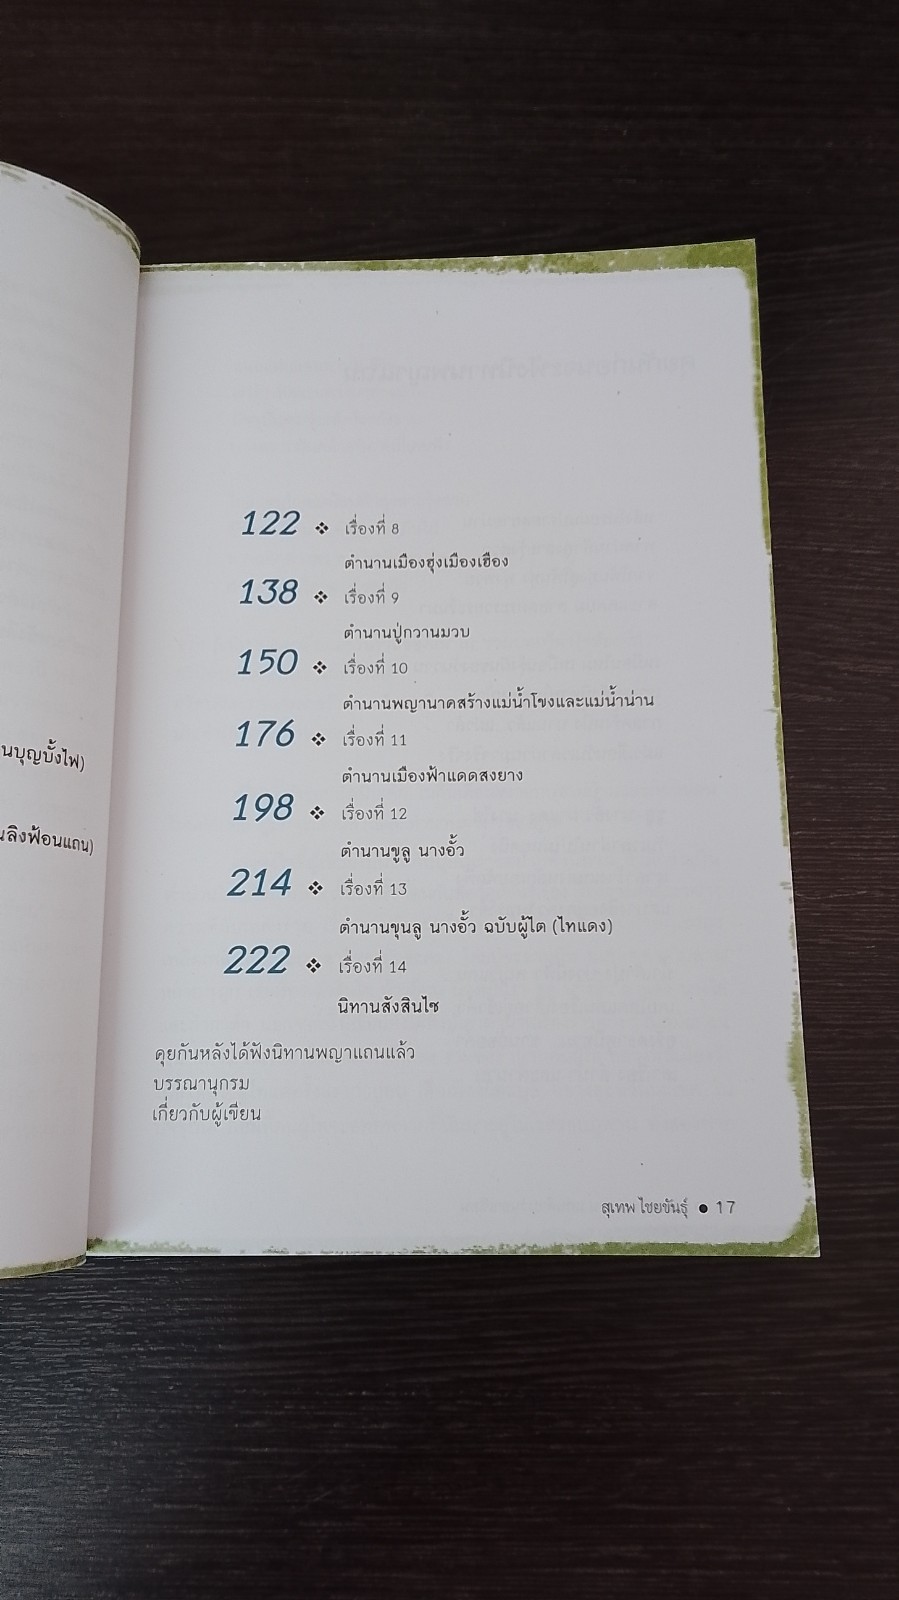 นบุญบั้งไฟ)
นลิงฟ้อนแถน)
122 ❖ เรื่องที่ 8
ตำนานเมืองฮุ่งเมืองเฮือง
138 ❖ เรื่องที่ 9
ตำนานปู่กวานมวบ
150 ❖ เรื่องที่ 10
ตำนานพญานาดสร้างแม่น้ำโขงและแม่น้ำน่าน
176 ❖ เรื่องที่ 11
ตำนานเมืองฟ้าแดดสงยาง
198 ❖ เรื่องที่ 12
ตำนานขูลู นางอั้ว
214 ❖ เรื่องที่ 13
ตำนานขุนลู นางอั้ว ฉบับผู้ไต (ไทแดง)
222 ❖ เรื่องที่ 14
นิทานสังสินไซ
คุยกันหลังได้ฟังนิทานพญาแถนแล้ว
บรรณานุกรม
เกี่ยวกับผู้เขียน
สุเทพ ไชยขันธุ์ ● 17